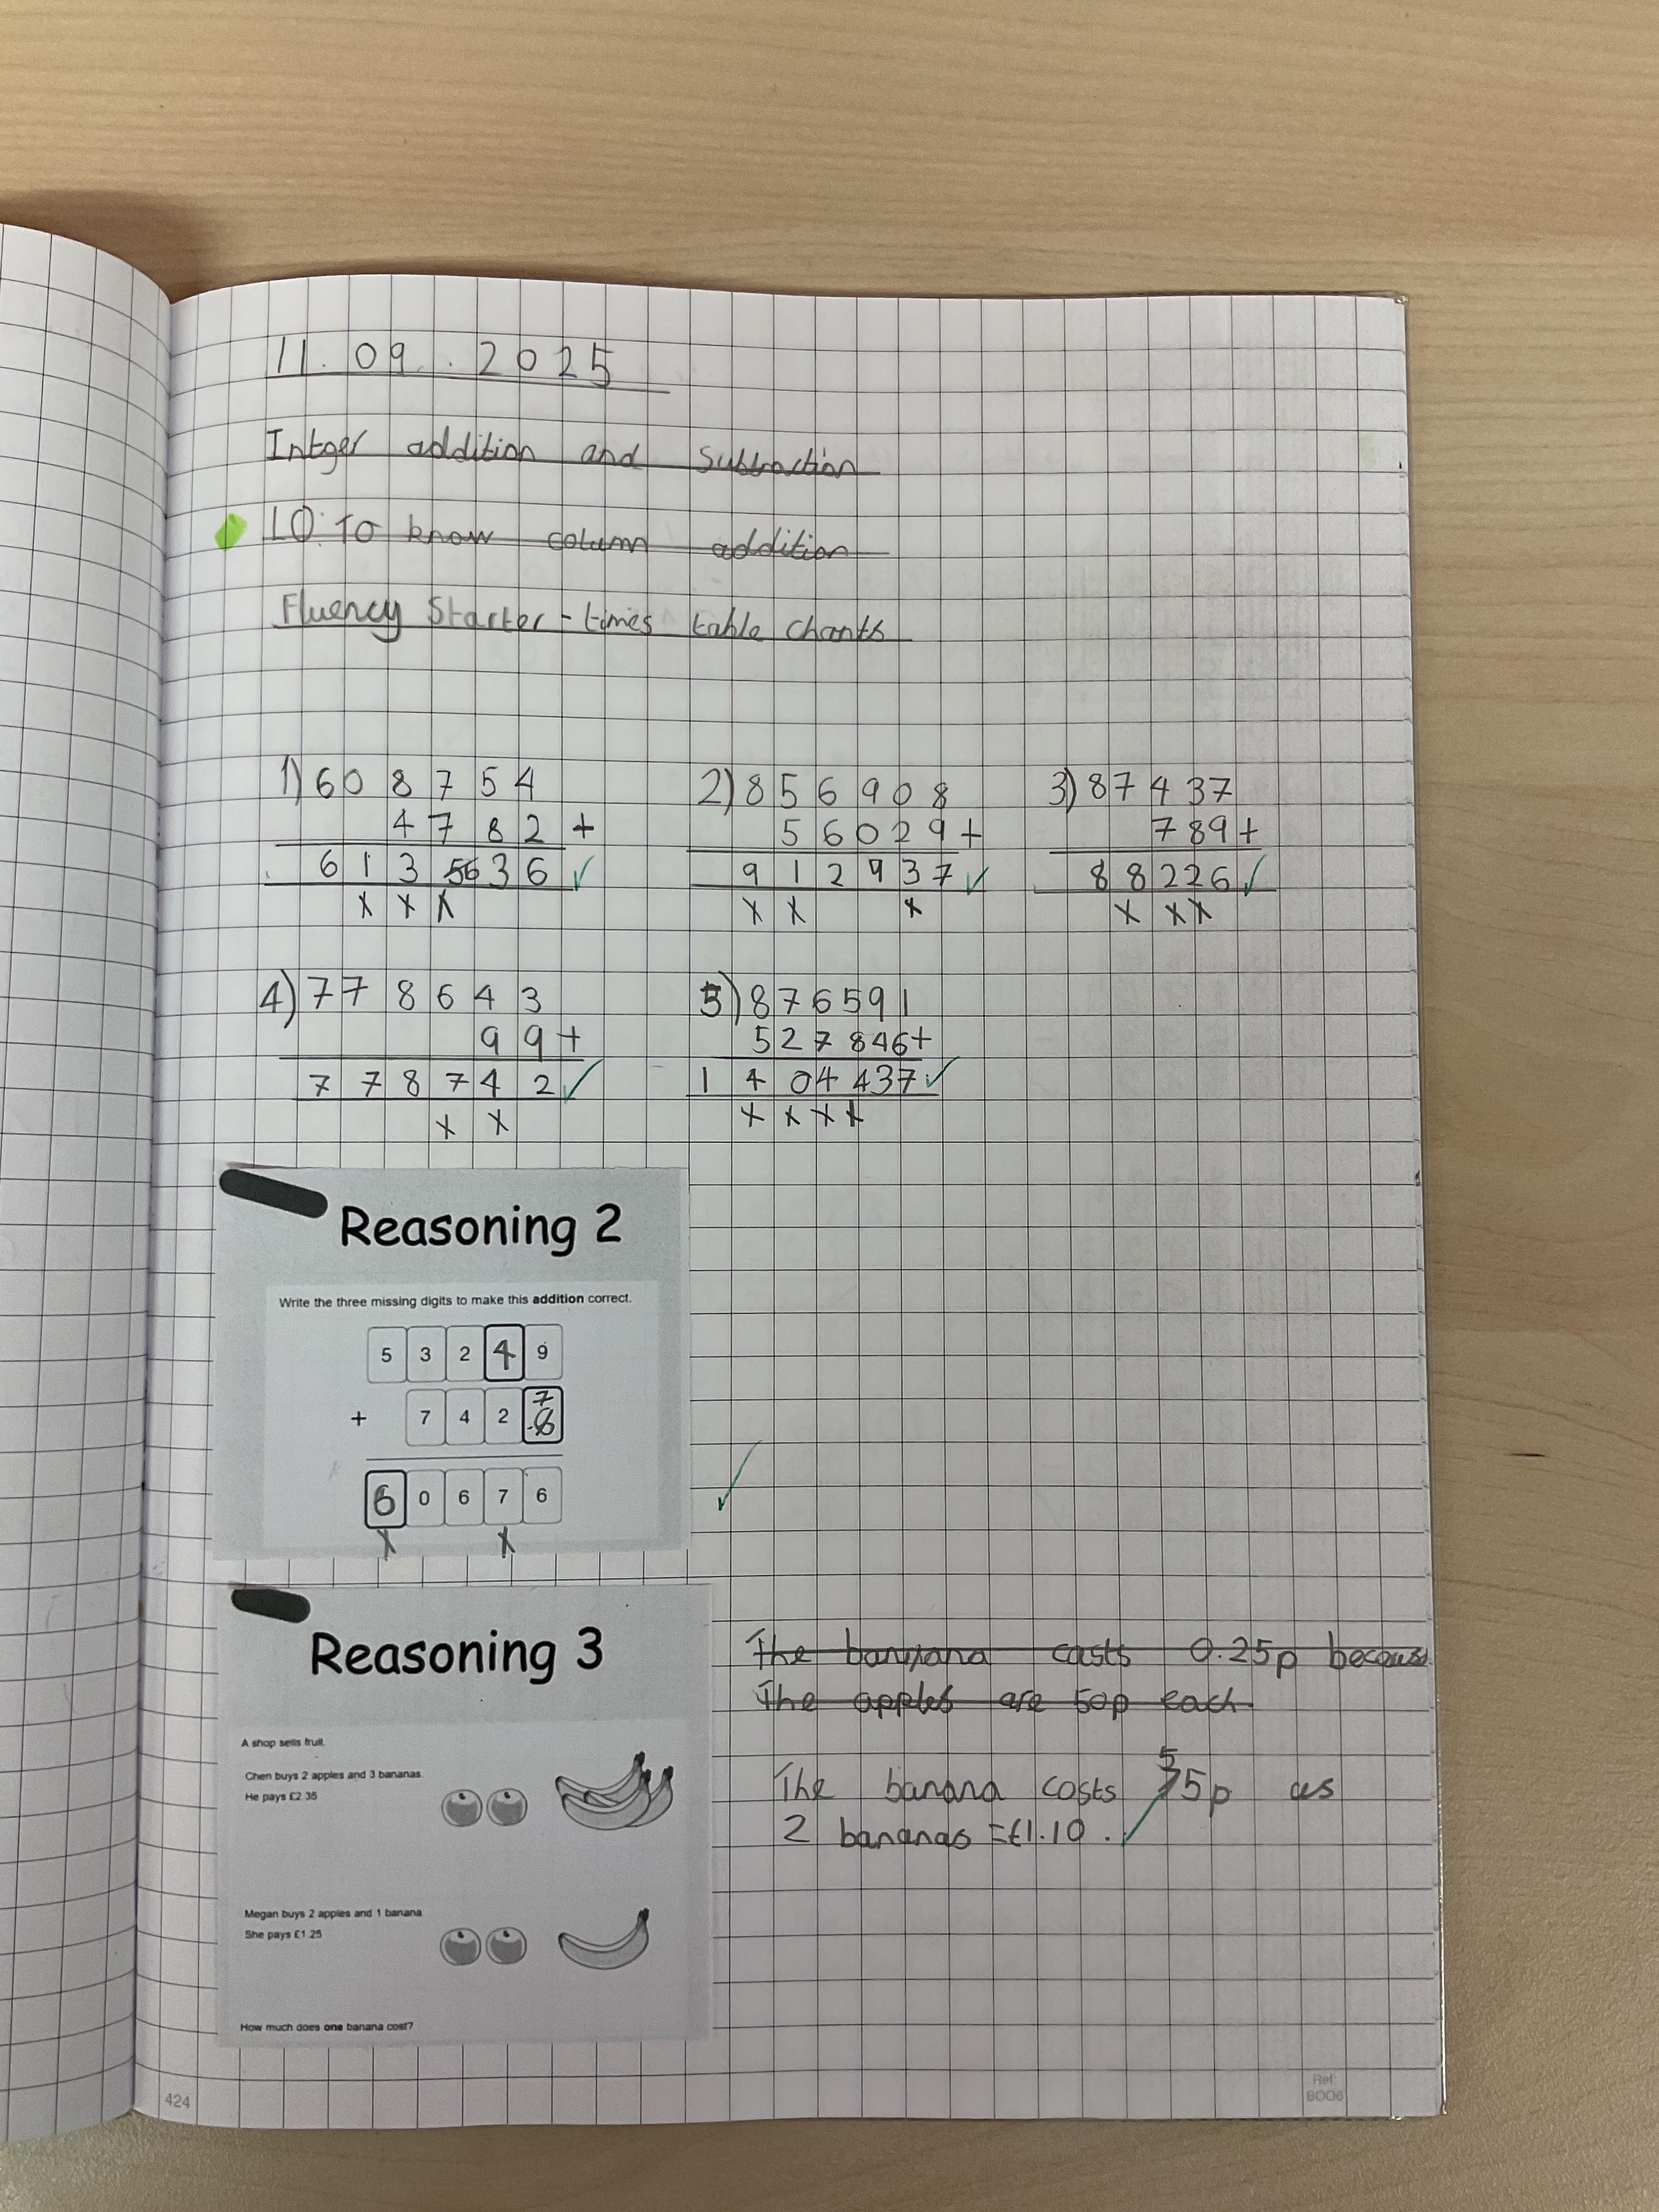 11.09.2025
Intger addition and Subtraction
LO: To know column addition
Fluency Starter - times table chants
1) 608754
4782 +
613 5636
2) 856908
56029 +
912937
3) 87437
789 +
88226
4) 778643
99 +
778742
5) 876591
527846 +
1404437
Reasoning 2
Write the three missing digits to make this addition correct.
5 3 2 4 9
+ 7 4 2 7
6 0 6 7 6
Reasoning 3
The banana costs 0.25p becaus
The apples are 50p each
A shop sells fruit.
Chen buys 2 apples and 3 bananas.
He pays £2.35
The banana costs 55p as
2 bananas = £1.10.
Megan buys 2 apples and 1 banana
She pays £1.25
How much does one banana cost?
424
Ref:
BO06